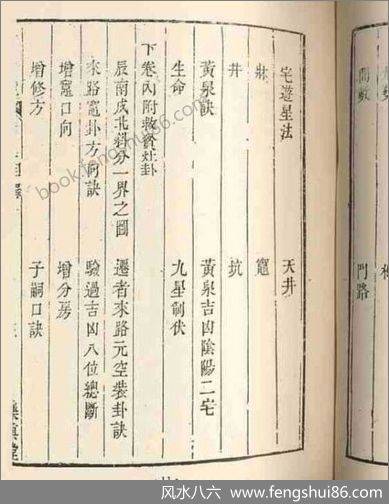 間數 門路
宅遊星法 天井
牀 竈
井 坑
黃泉訣 黃泉吉凶陰陽二宅
生命 九星制伏
下卷內附救貧灶卦
辰南戌北斜分一界之圖 遷者來路元空裝卦訣
來路竈卦方向訣 驗過吉凶八位總斷
增竈口向 增分房
增修方 子嗣口訣
book.fengshui86.com
风水八六 www.fengshui86.com